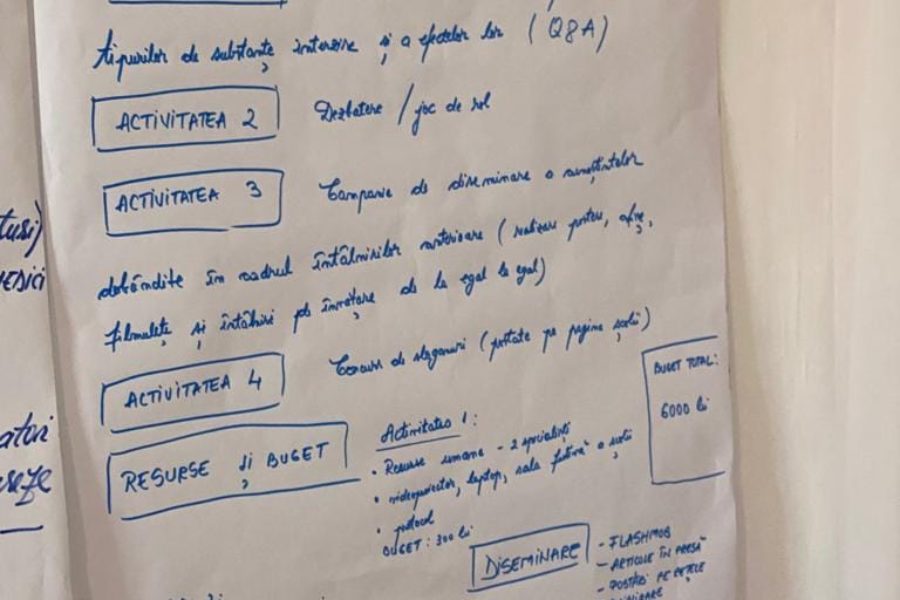 tipurilor de substanțe interzise și a efectelor lor (Q&A)
ACTIVITATEA 2 Dezbatere / joc de rol
ACTIVITATEA 3 Campanie de diseminare a cunoștințelor
dobândite în cadrul întâlnirilor anterioare (realizare postere, afișe,
filmulețe și întâlniri de învățare de la egal la egal)
ACTIVITATEA 4 Concurs de sloganuri (postate pe pagina școlii)
BUGET TOTAL:
6000 lei
RESURSE și BUGET
Activitatea 1:
• Resurse umane - 2 specialiști
• videoproiector, laptop, sala festivă a școlii
• protocol
BUGET: 300 lei
DISEMINARE
- FLASHMOB
- ARTICOLE ÎN PRESĂ
- POSTĂRI PE REȚELE
tusi)
atori